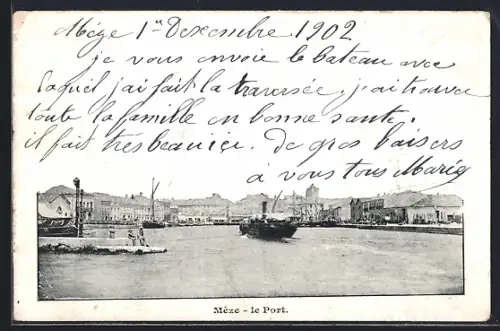 Mèze 1er Dexembre 1902
je vous envoie le bateau avec
laquel j'ai fait la traversée. j'ai trouvée
toute la famille en bonne sante.
il fait très beau içi. De gros baisers
à vous tous Marie
Mèze - le Port.